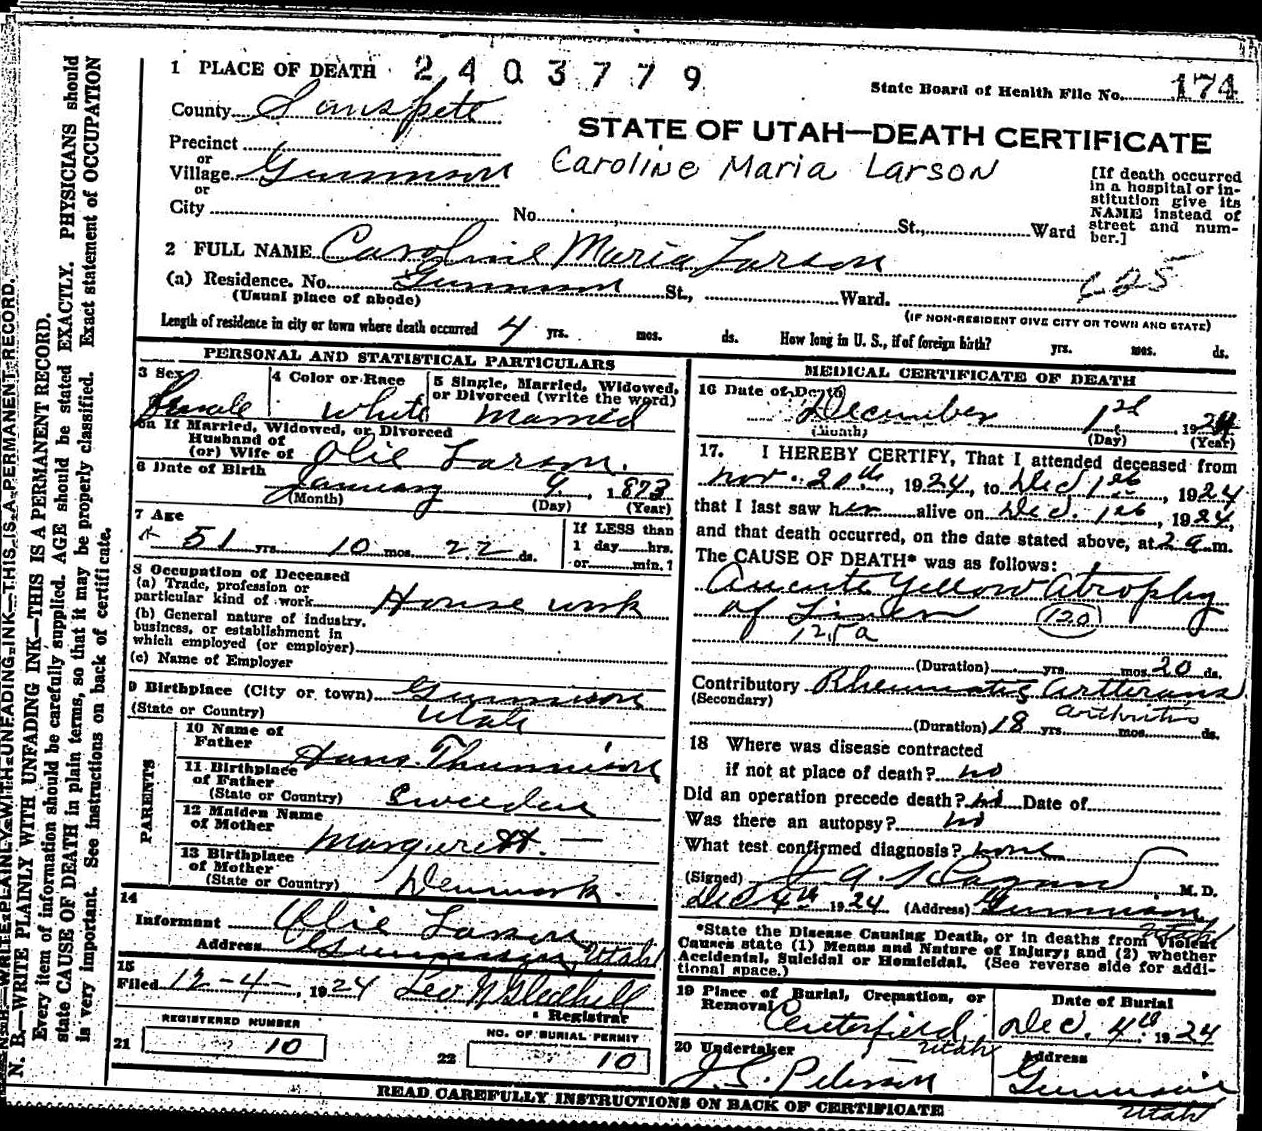 N. B.—WRITE PLAINLY WITH UNFADING INK—THIS IS A PERMANENT RECORD.
Every item of information should be carefully supplied. AGE should be stated EXACTLY. PHYSICIANS should
state CAUSE OF DEATH in plain terms, so that it may be properly classified. Exact statement of OCCUPATION
is very important. See instructions on back of certificate.
1 PLACE OF DEATH 2403779
State Board of Health File No. 174
County Sanspete
STATE OF UTAH—DEATH CERTIFICATE
Precinct
or
Village Gunnison
Caroline Maria Larson
or
City No. St., Ward
[If death occurred
in a hospital or in-
stitution give its
NAME instead of
street and num-
ber.]
2 FULL NAME Caroline Maria Larson
(a) Residence. No. Gunnison St., Ward.
(Usual place of abode)
(IF NON-RESIDENT GIVE CITY OR TOWN AND STATE)
Length of residence in city or town where death occurred 4 yrs. mos. ds. How long in U. S., if of foreign birth? yrs. mos. ds.
PERSONAL AND STATISTICAL PARTICULARS
3 Sex female
4 Color or Race White
5 Single, Married, Widowed,
or Divorced (write the word)
Married
5a If Married, Widowed, or Divorced
Husband of
(or) Wife of Olie Larson.
6 Date of Birth January 9, 1873
(Month) (Day) (Year)
7 Age
51 yrs. 10 mos. 22 ds.
If LESS than
1 day hrs.
or min.?
8 Occupation of Deceased
(a) Trade, profession or
particular kind of work House work
(b) General nature of industry,
business, or establishment in
which employed (or employer)
(c) Name of Employer
9 Birthplace (City or town) Gunnison
(State or Country) Utah
PARENTS
10 Name of
Father Hans
11 Birthplace
of Father
(State or Country) Sweeden
12 Maiden Name
of Mother Margarett —
13 Birthplace
of Mother
(State or Country) Denmark.
14
Informant Olie Larson
Address Gunnison, Utah
15
Filed 12-4-, 1924 Leo N Gledhill
Registrar
REGISTERED NUMBER
21 10
NO. OF BURIAL PERMIT
22 10
MEDICAL CERTIFICATE OF DEATH
16 Date of Death
December 1st 1924
(Month) (Day) (Year)
17. I HEREBY CERTIFY, That I attended deceased from
Nov. 20th, 1924, to Dec 1st, 1924
that I last saw her alive on Dec. 1st, 1924,
and that death occurred, on the date stated above, at 2 a m.
The CAUSE OF DEATH* was as follows:
Yellow atrophy
of Liver 120
125a
(Duration) yrs. mos. 20 ds.
Contributory
(Secondary)
arthritis
(Duration) 18 yrs. mos. ds.
18 Where was disease contracted
if not at place of death? no
Did an operation precede death? no Date of
Was there an autopsy? no
What test confirmed diagnosis? none
(Signed) M.D.
Dec 4th 1924 (Address) Gunnison
Utah
*State the Disease Causing Death, or in deaths from Violent
Causes state (1) Means and Nature of Injury; and (2) whether
Accidental, Suicidal or Homicidal. (See reverse side for addi-
tional space.)
19 Place of Burial, Cremation, or
Removal Centerfield, Utah
Date of Burial
Dec. 4th 1924
20 Undertaker
Address
Gunnison
Utah
READ CAREFULLY INSTRUCTIONS ON BACK OF CERTIFICATE